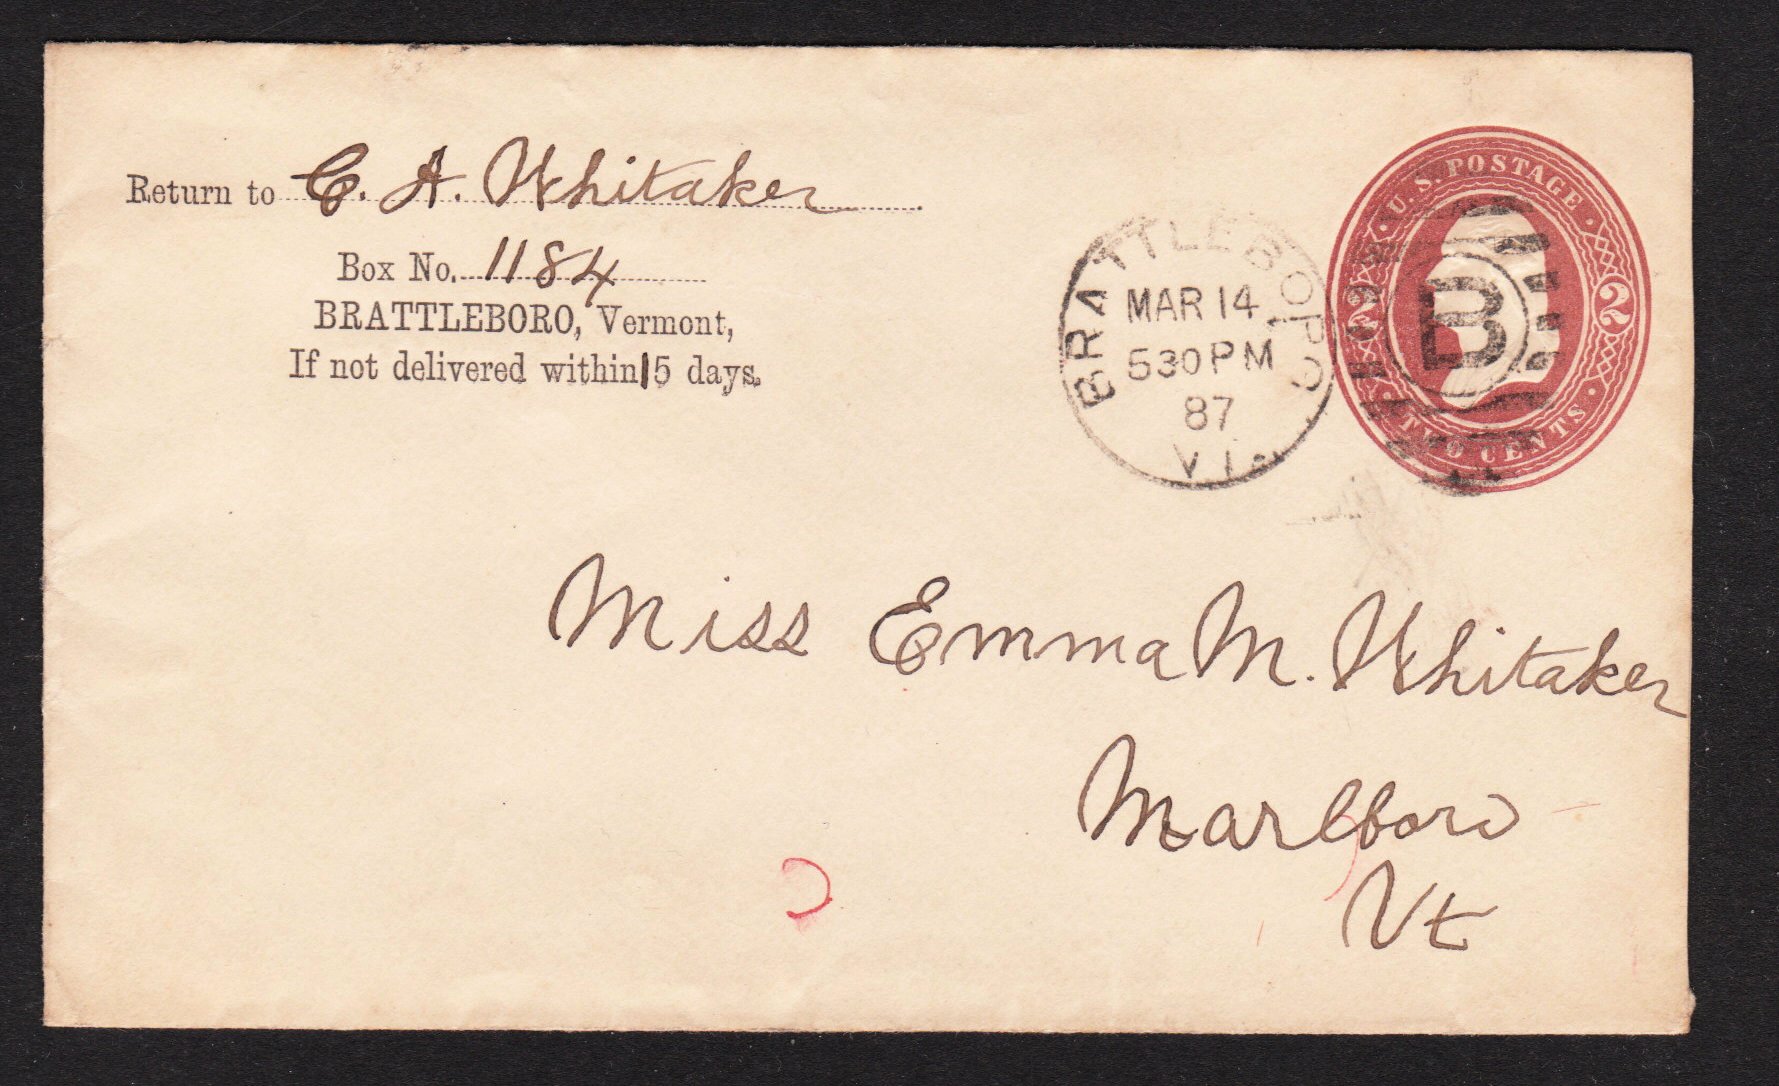 Return to C. A. Whitaker
Box No. 1184
BRATTLEBORO, Vermont,
If not delivered within 15 days.
BRATTLEBORO
MAR 14
530 PM
87
VT.
B
U.S. POSTAGE
2 2
TWO CENTS
Miss Emma M. Whitaker
Marlboro
Vt